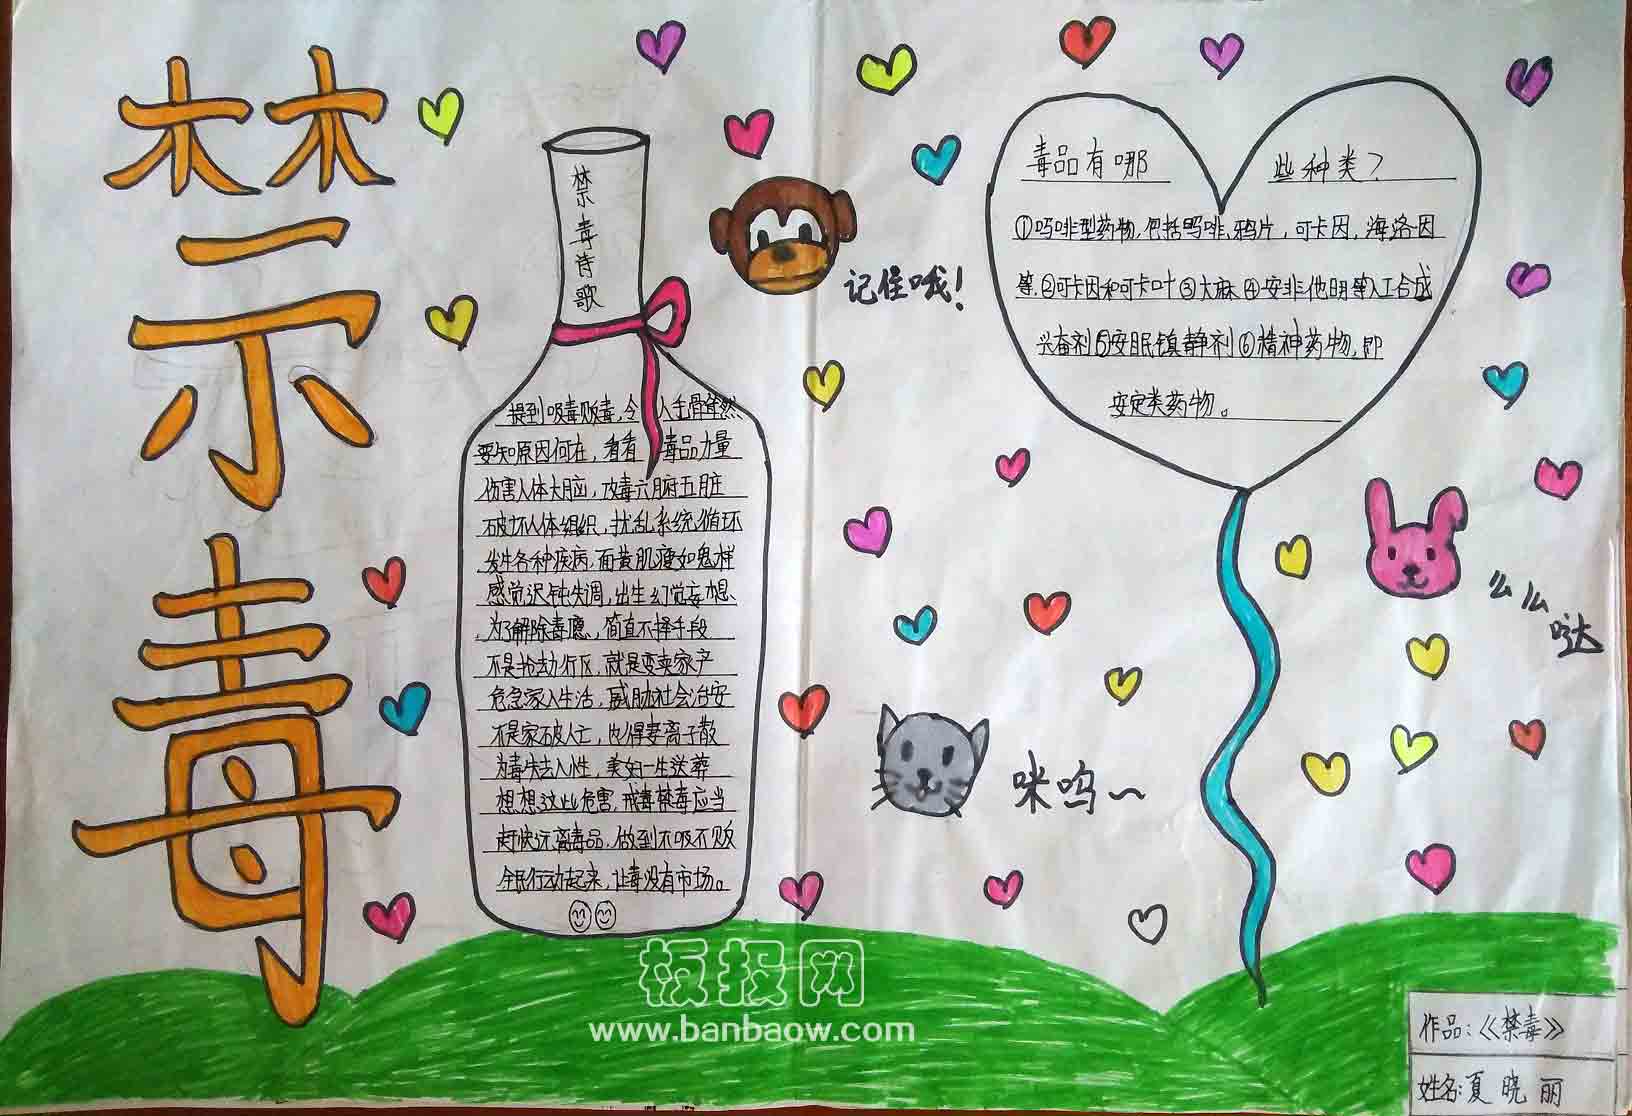 禁毒
禁毒诗歌
提到吸毒贩毒,令人毛骨耸然
要知原因何在,看看毒品力量
伤害人体大脑,攻毒六腑五脏
破坏人体组织,扰乱系统循环
发生各种疾病,面黄肌瘦如鬼样
感觉迟钝失调,出生幻觉妄想
为了解除毒瘾,简直不择手段
不是抢去劫行凶,就是变卖家产
危急家人生活,威胁社会治安
不是家破人亡,也得妻离子散
为毒失去人性,美好一生送葬
想想这些危害,戒毒禁毒应当
赶快远离毒品,做到不吸不贩
全民行动起来,让毒没有市场。
记住哦!
毒品有哪些种类?
①吗啡型药物,包括吗啡、鸦片,可卡因,海洛因
等②可卡因和可卡叶③大麻④安非他明等人工合成
兴奋剂⑤安眠镇静剂⑥精神药物,即
安定类药物。
么么哒
咪呜~
板报网
www.banbaow.com
作品:《禁毒》
姓名:夏晓丽